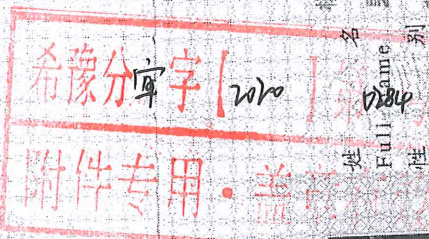 希豫分宜字[2020]第0284
附件专用·盖
姓名
Full name
性别